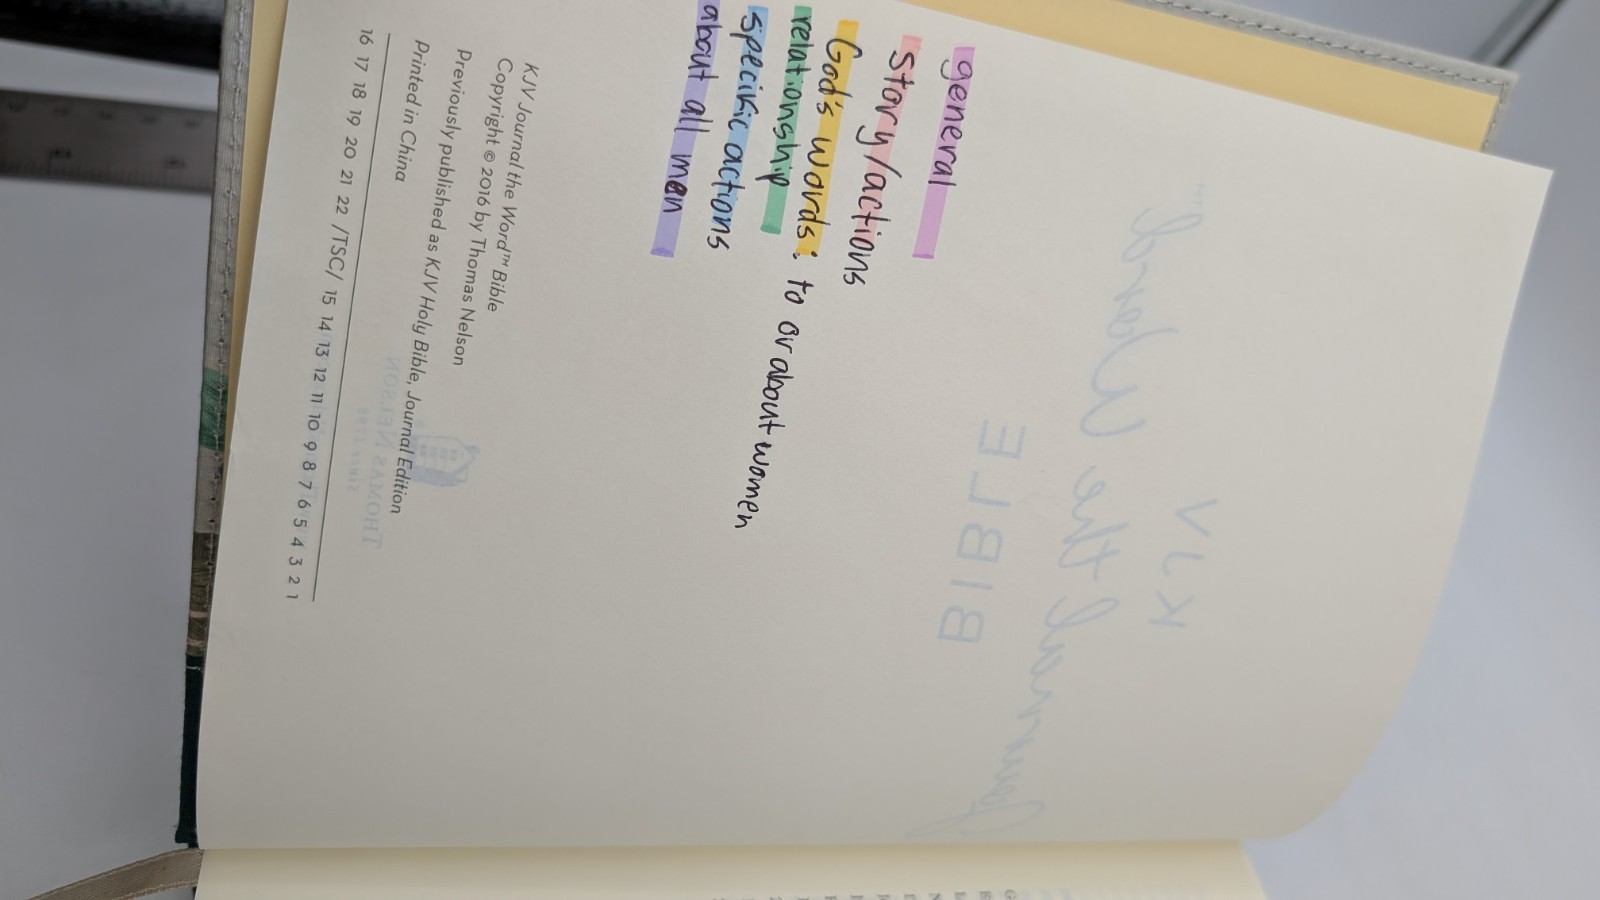 general
story/actions
God's words: to or about women
relationship
specific actions
about all men
KJV Journal the Word™ Bible
Copyright © 2016 by Thomas Nelson
Previously published as KJV Holy Bible, Journal Edition
Printed in China
16 17 18 19 20 21 22 /TSC/ 15 14 13 12 11 10 9 8 7 6 5 4 3 2 1
KJV
Journal the Word
BIBLE
THOMAS NELSON